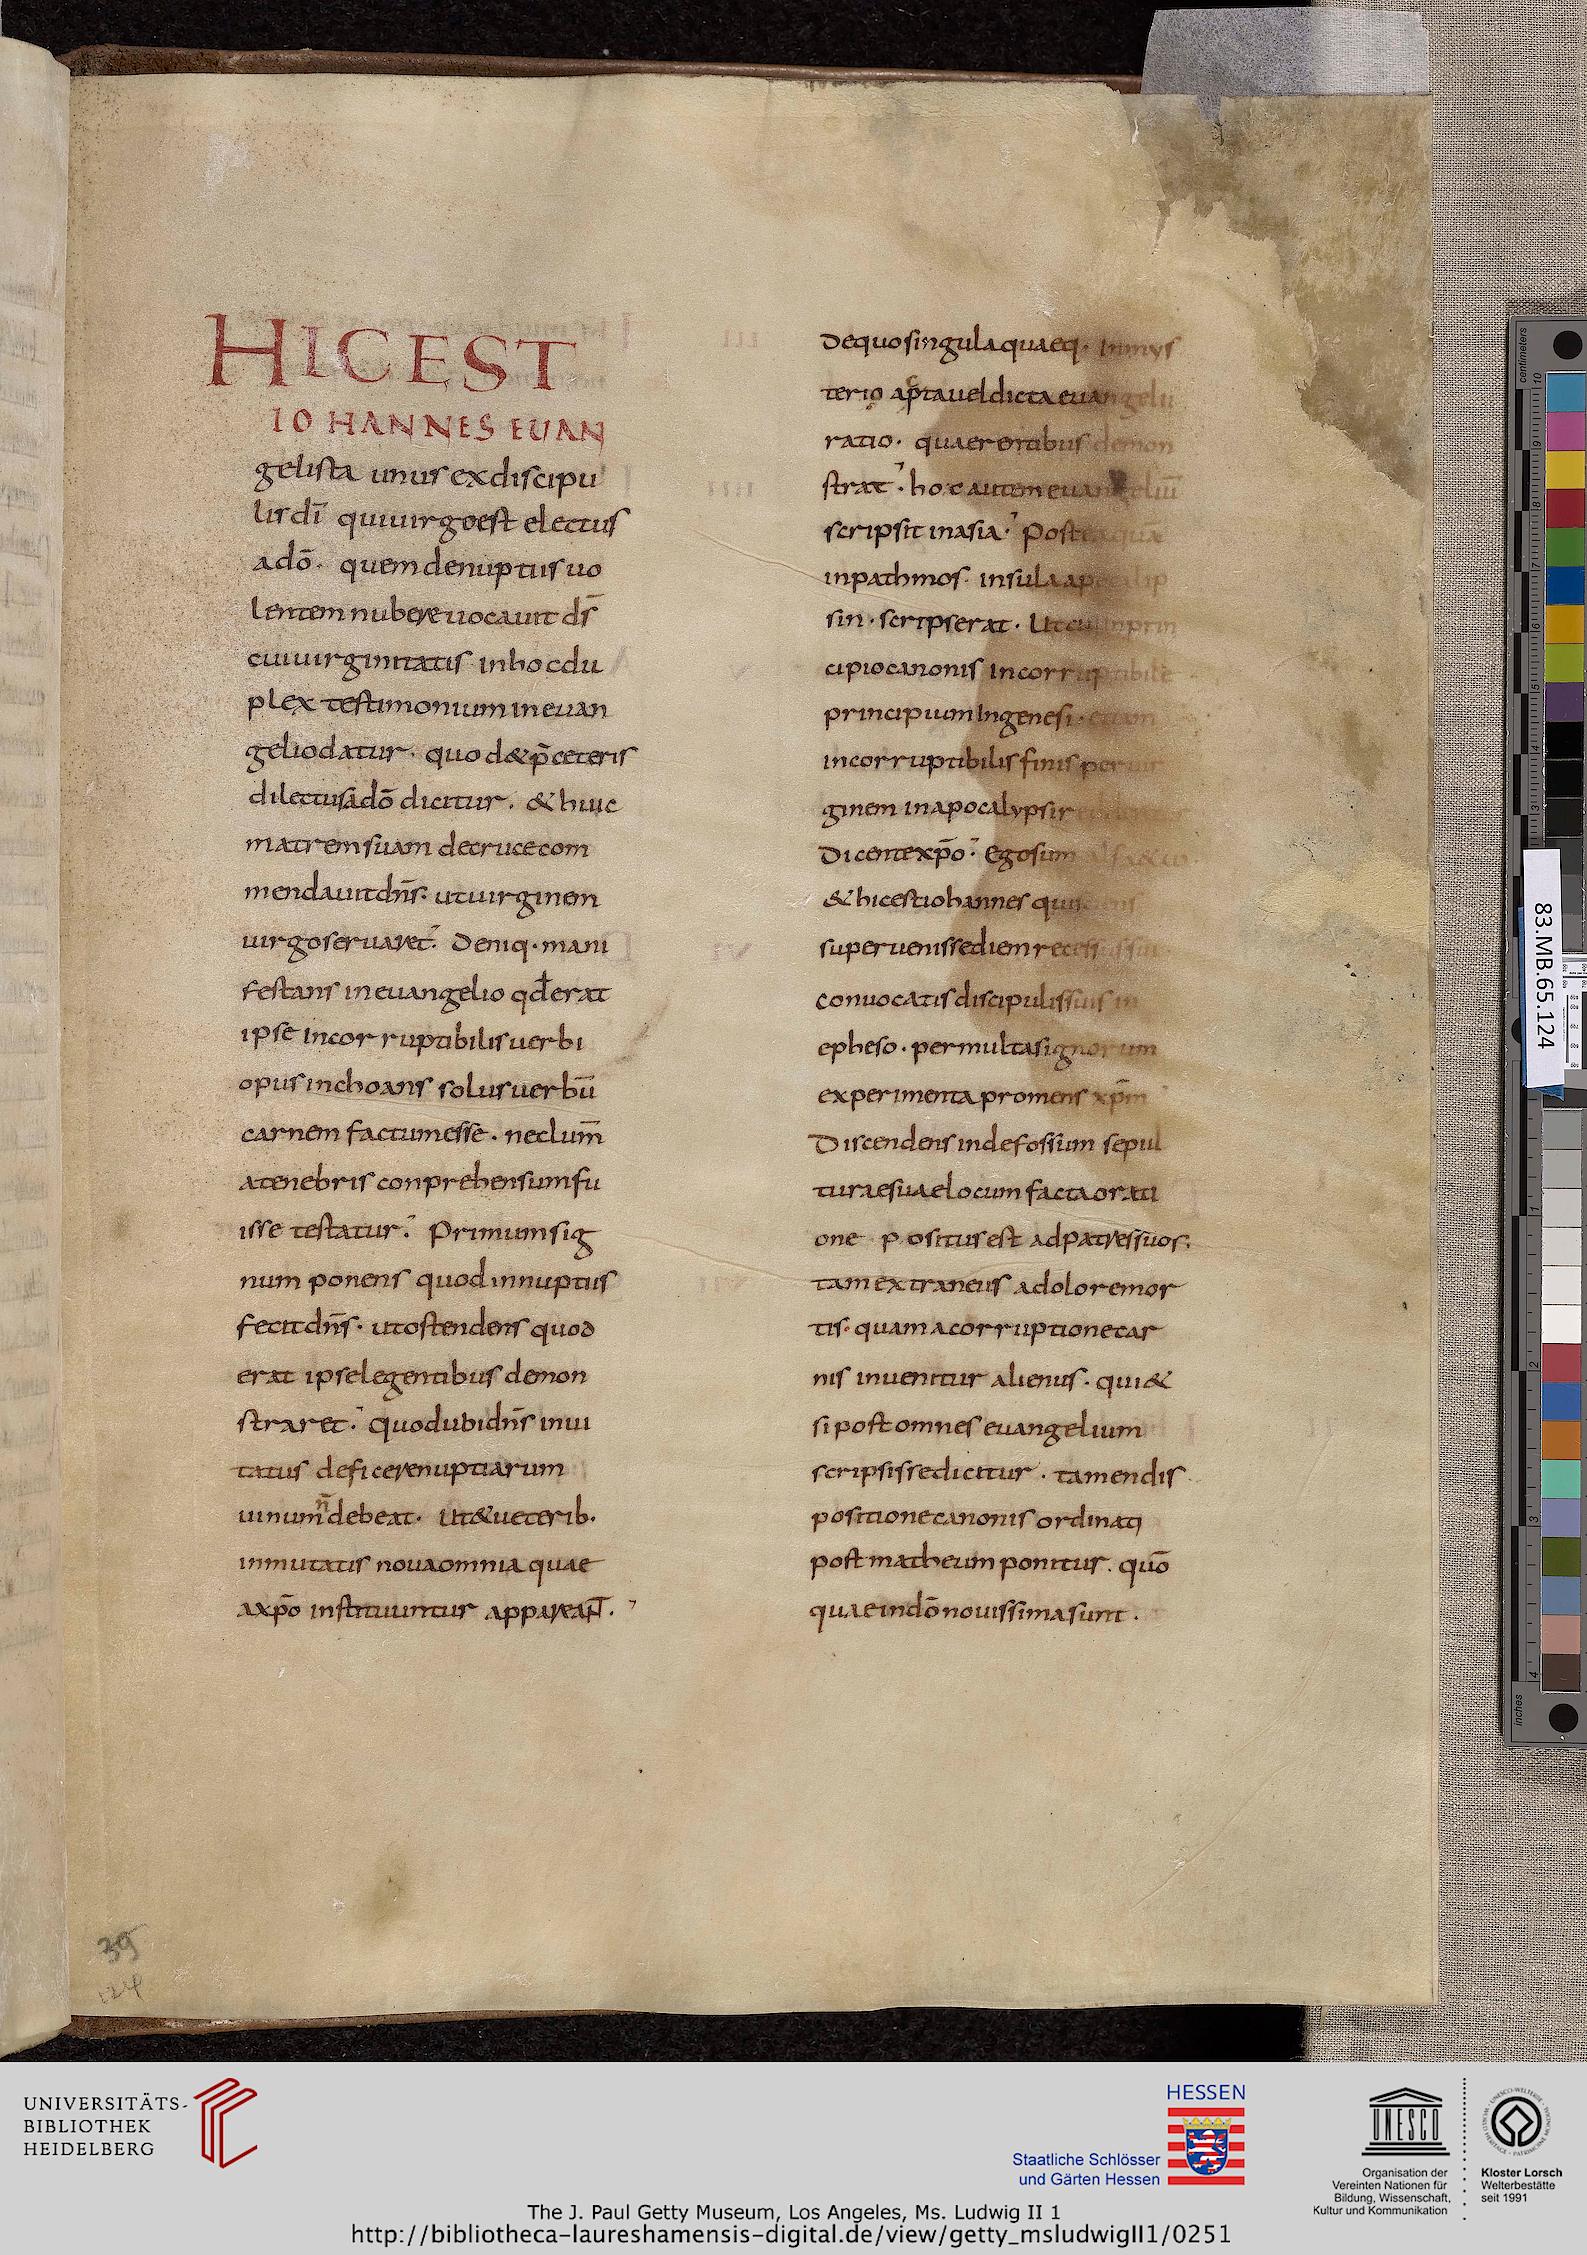 HIC EST
IOHANNES EUAN
gelista unus ex discipu
lis dī qui uirgo est electus
a dō. quem de nuptiis uo
lentem nubere uocauit dš
cui uirginitatis in hoc du
plex testimonium in euan
gelio datur. quod & p̄ ceteris
dilectus a dō dicitur. & huic
matrem suam de cruce com
mendauit dn̄s. ut uirginem
uirgo seruaret. Deniq· mani
festans in euangelio qđ erat
ipse incorruptibilis uerbi
opus inchoans solus uerbū
carnem factum esse. nec lum̄
a tenebris conprehensum fu
isse testatur. Primum sig
num ponens quod in nuptiis
fecit dn̄s. ut ostendens quod
erat ipse legentibus demon
straret. quod ubi dn̄s inui
tatus deficere nuptiarum
uinum n̄ debeat. Ut & ueterib·
inmutatis noua omnia quae
a xp̄o instituuntur appareant.
De quo singula quaeq· in mys
terio apta uel dicta euangelii
ratio. quaerentibus demon
strat. hoc autem euangeliū
scripsit in asia. Postea qua
in pathmos insula apocalip
sin. scripserat. Ut cui in prin
cipio canonis incorruptibile
principium in genesi. etiam
incorruptibilis finis per uir
ginem in apocalypsi
Dicente xp̄o. Ego sum alfa & ω
& hic est iohannes qui sciens
superuenisse diem recessus sui
conuocatis discipulis suis in
epheso. per multa signorum
experimenta promens xp̄m
Discendens in defossum sepul
turae suae locum facta orati
one positus est ad patres suos.
tam extraneus a dolore mor
tis. quam a corruptione car
nis inuenitur alienus. qui &
si post omnes euangelium
scripsisse dicitur. tamen dis
positione canonis ordinati
post matheum ponitur. quō
quae in dō nouissima sunt.
39
124
83.MB.65.124
centimeters
inches
UNIVERSITÄTS-
BIBLIOTHEK
HEIDELBERG
HESSEN
Staatliche Schlösser
und Gärten Hessen
UNESCO
Organisation der
Vereinten Nationen für
Bildung, Wissenschaft,
Kultur und Kommunikation
Kloster Lorsch
Welterbestätte
seit 1991
The J. Paul Getty Museum, Los Angeles, Ms. Ludwig II 1
http://bibliotheca-laureshamensis-digital.de/view/getty_msludwigII1/0251